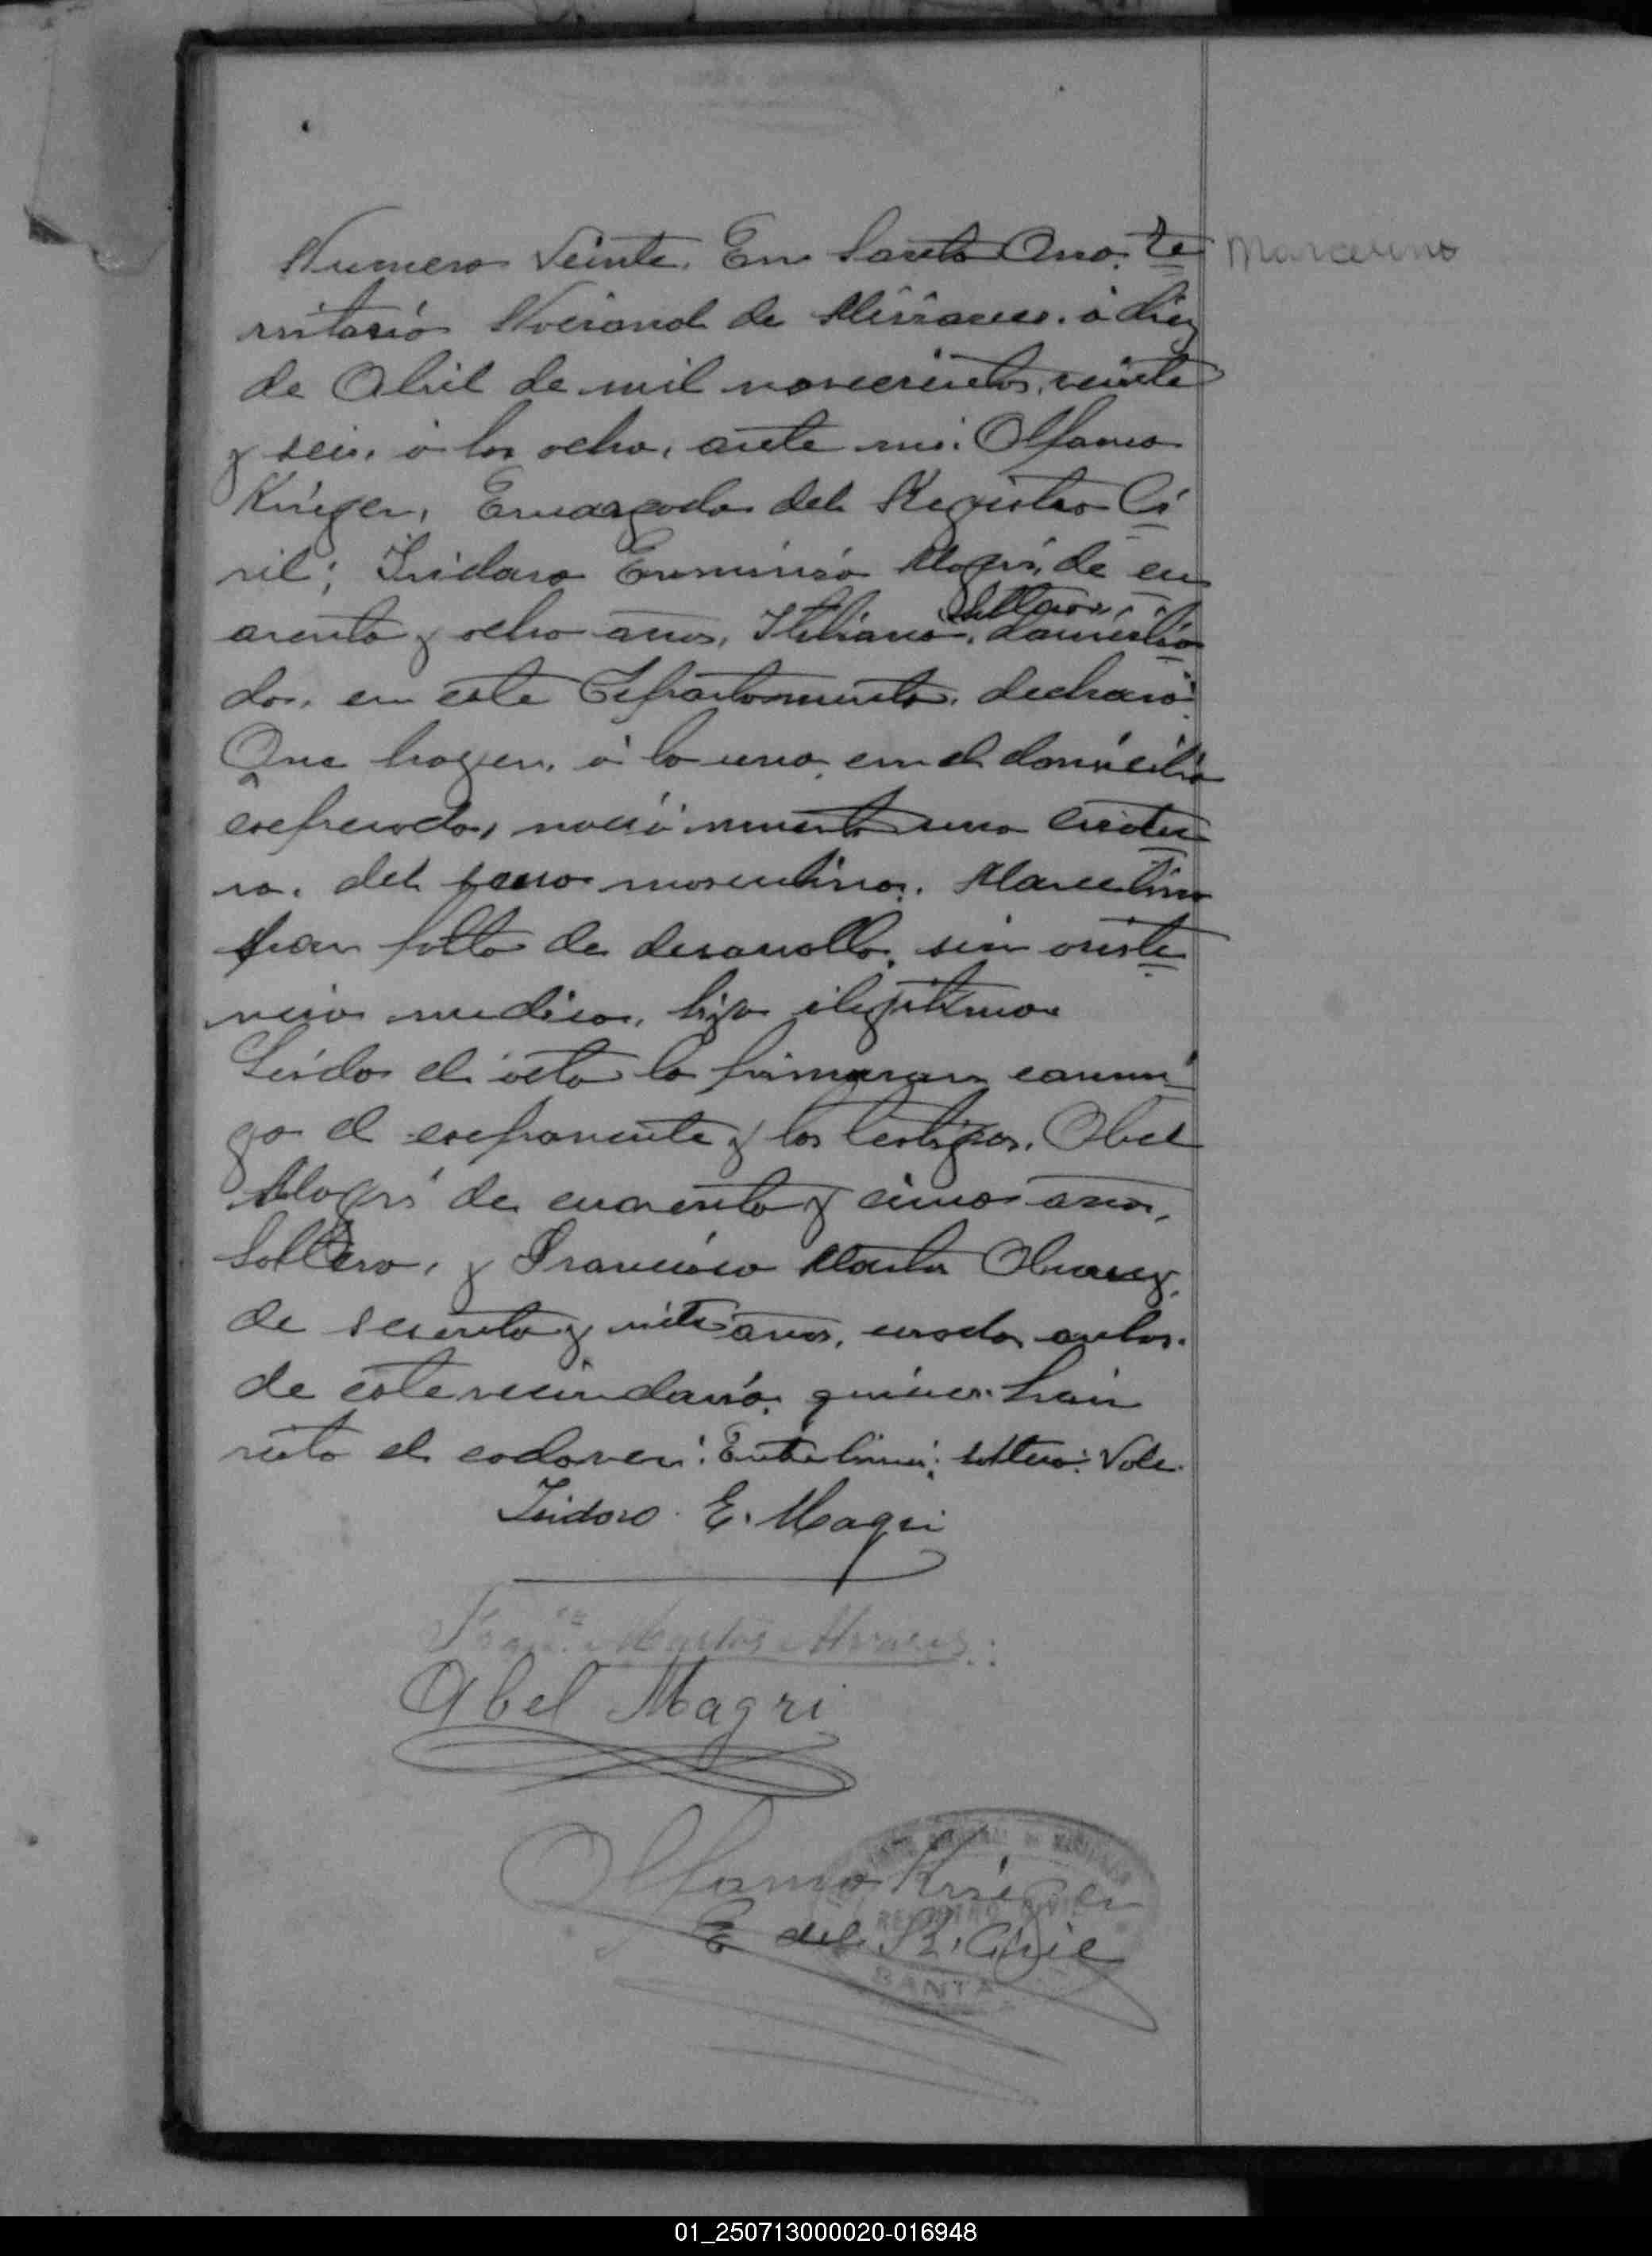 Numero Veinte. En Santa Ana. te
rritorio Nacional de Misiones. á diez
de Abril de mil novecientos veinte
y seis. á las ocho, ante mi: Alfonso
Kriger, Encargado del Registro Ci
vil; Isidoro Erminio Magri, de cu
soltero,
arenta y ocho años, Italiano, domicilia
do, en este Departamento, declaró:
Que hoyer, á la una, en el domicilio
expresado, nació muerta una criatu
ra, del sexo masculino. Marcelino
por falta de desarollo, sin asiste
ncia medica, hijo ilegitimo
Leida el acta la firmaron conmi
go el exponente y los testigos, Abel
Magri de cuarenta y cinco años,
soltero, y Francisco Martos Alvarez,
de sesenta y siete años, casado, ambos
de este vecindario, quienes han
visto el cadaver: Entre linea: soltero: Vale.
Isidoro E. Magri
Franco Martos Alvares
Abel Magri
Alfonso Kriger
E del R. Civil
REGISTRO CIVIL
SANTA
Marcelino
01_250713000020-016948